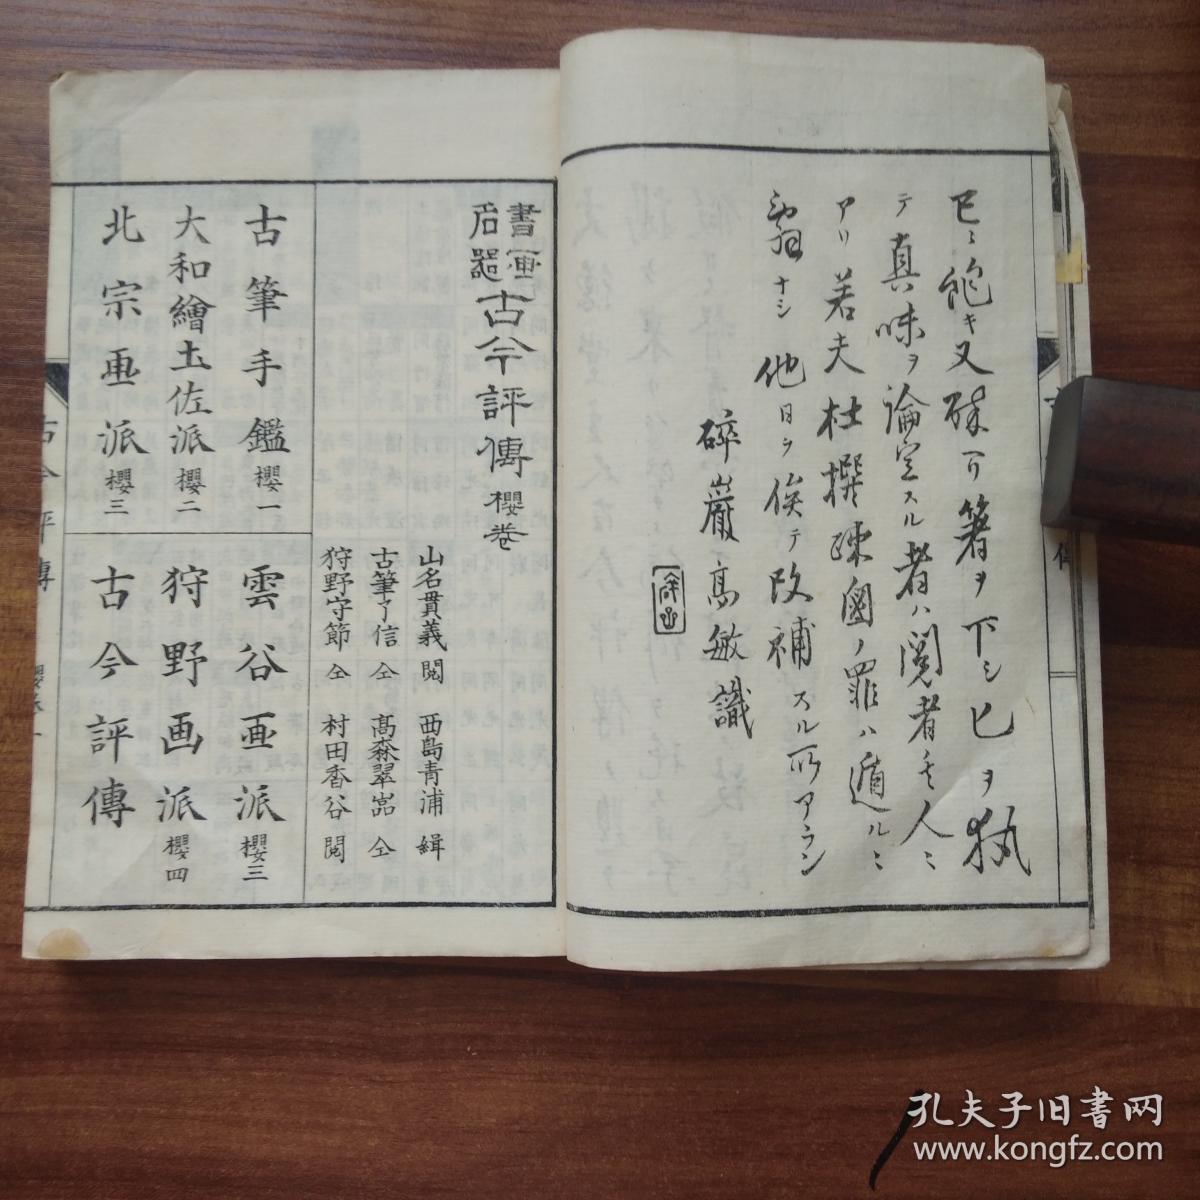 テ真味ヲ論定スル者ハ閲者其人ニ
アリ若夫杜撰疎國ノ罪ハ遁ルニ
ナシ他日ヲ俟テ改補スル所アラン
碎巖高敏識
書画
古今評傳櫻卷
山名貫義閲 西島青浦緝
古筆了信仝 髙森翠嵓仝
狩野守節仝 村田香谷閲
古筆手鑑櫻一
大和繪土佐派櫻二
北宗画派櫻三
雲谷画派櫻三
狩野画派櫻四
古今評傳
古今評傳
孔夫子旧书网
www.kongfz.com